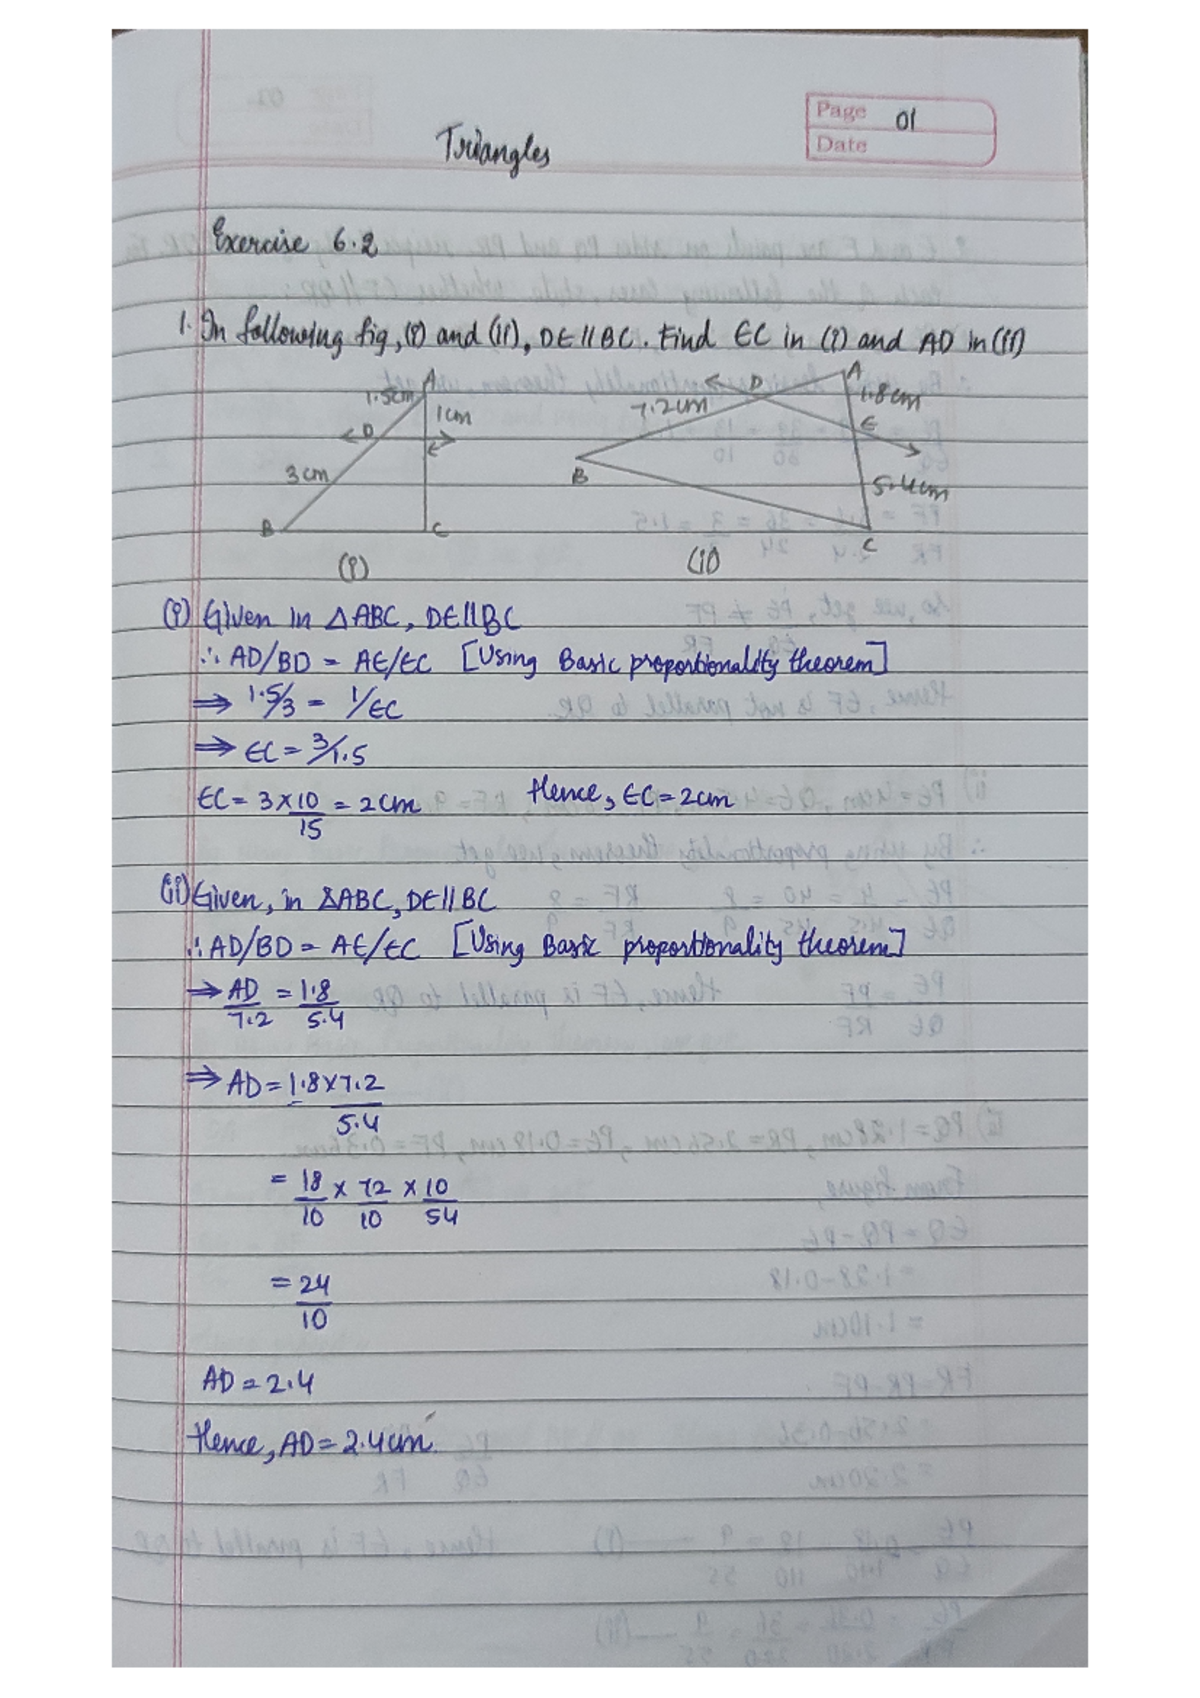 Page 01
Date
Triangles
Exercise 6.2
1. In following fig, (i) and (ii), DE || BC. Find EC in (i) and AD in (ii)
A
1.5cm
1cm
D
E
3cm
B
C
(i)
A
D
1.8cm
7.2cm
E
B
5.4cm
C
(ii)
(i) Given in △ABC, DE||BC
∴ AD/BD = AE/EC [Using Basic proportionality theorem]
⇒ 1.5/3 = 1/EC
⇒ EC = 3/1.5
EC = 3×10/15 = 2cm Hence, EC = 2cm
(ii) Given, in △ABC, DE || BC
∴ AD/BD = AE/EC [Using Basic proportionality theorem]
⇒ AD/7.2 = 1.8/5.4
⇒ AD = 1.8×7.2/5.4
= 18/10 × 72/10 × 10/54
= 24/10
AD = 2.4
Hence, AD = 2.4cm.